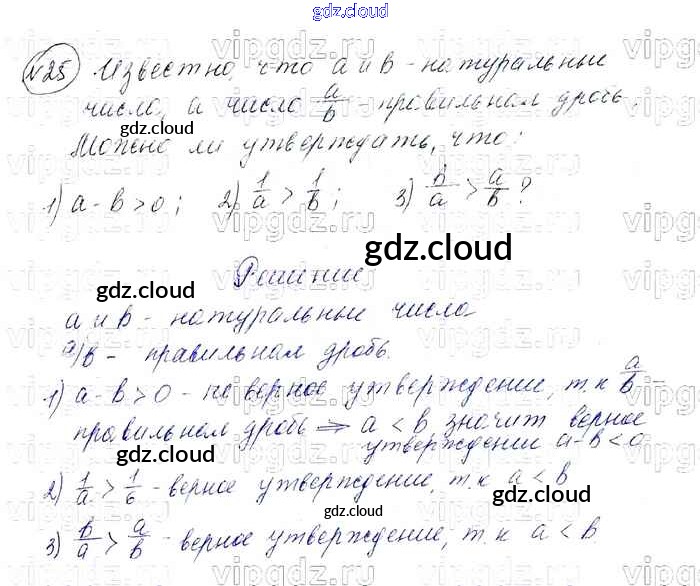 gdz.cloud
№25 Известно, что a и b - натуральные
число, а число a/b - правильная дробь.
gdz.cloud
Можно ли утверждать, что:
1) a - b > 0; 2) 1/a > 1/b; 3) b/a > a/b?
gdz.cloud
gdz.cloud
Решение
gdz.cloud
a и b - натуральные числа
a/b - правильная дробь.
1) a - b > 0 - не верное утверждение, т.к a/b -
правильная дробь ⇒ a < b значит верное
утверждение a - b < 0
gdz.cloud
gdz.cloud
2) 1/a > 1/b - верное утверждение, т.к a < b
gdz.cloud
3) b/a > a/b - верное утверждение, т.к a < b
gdz.cloud